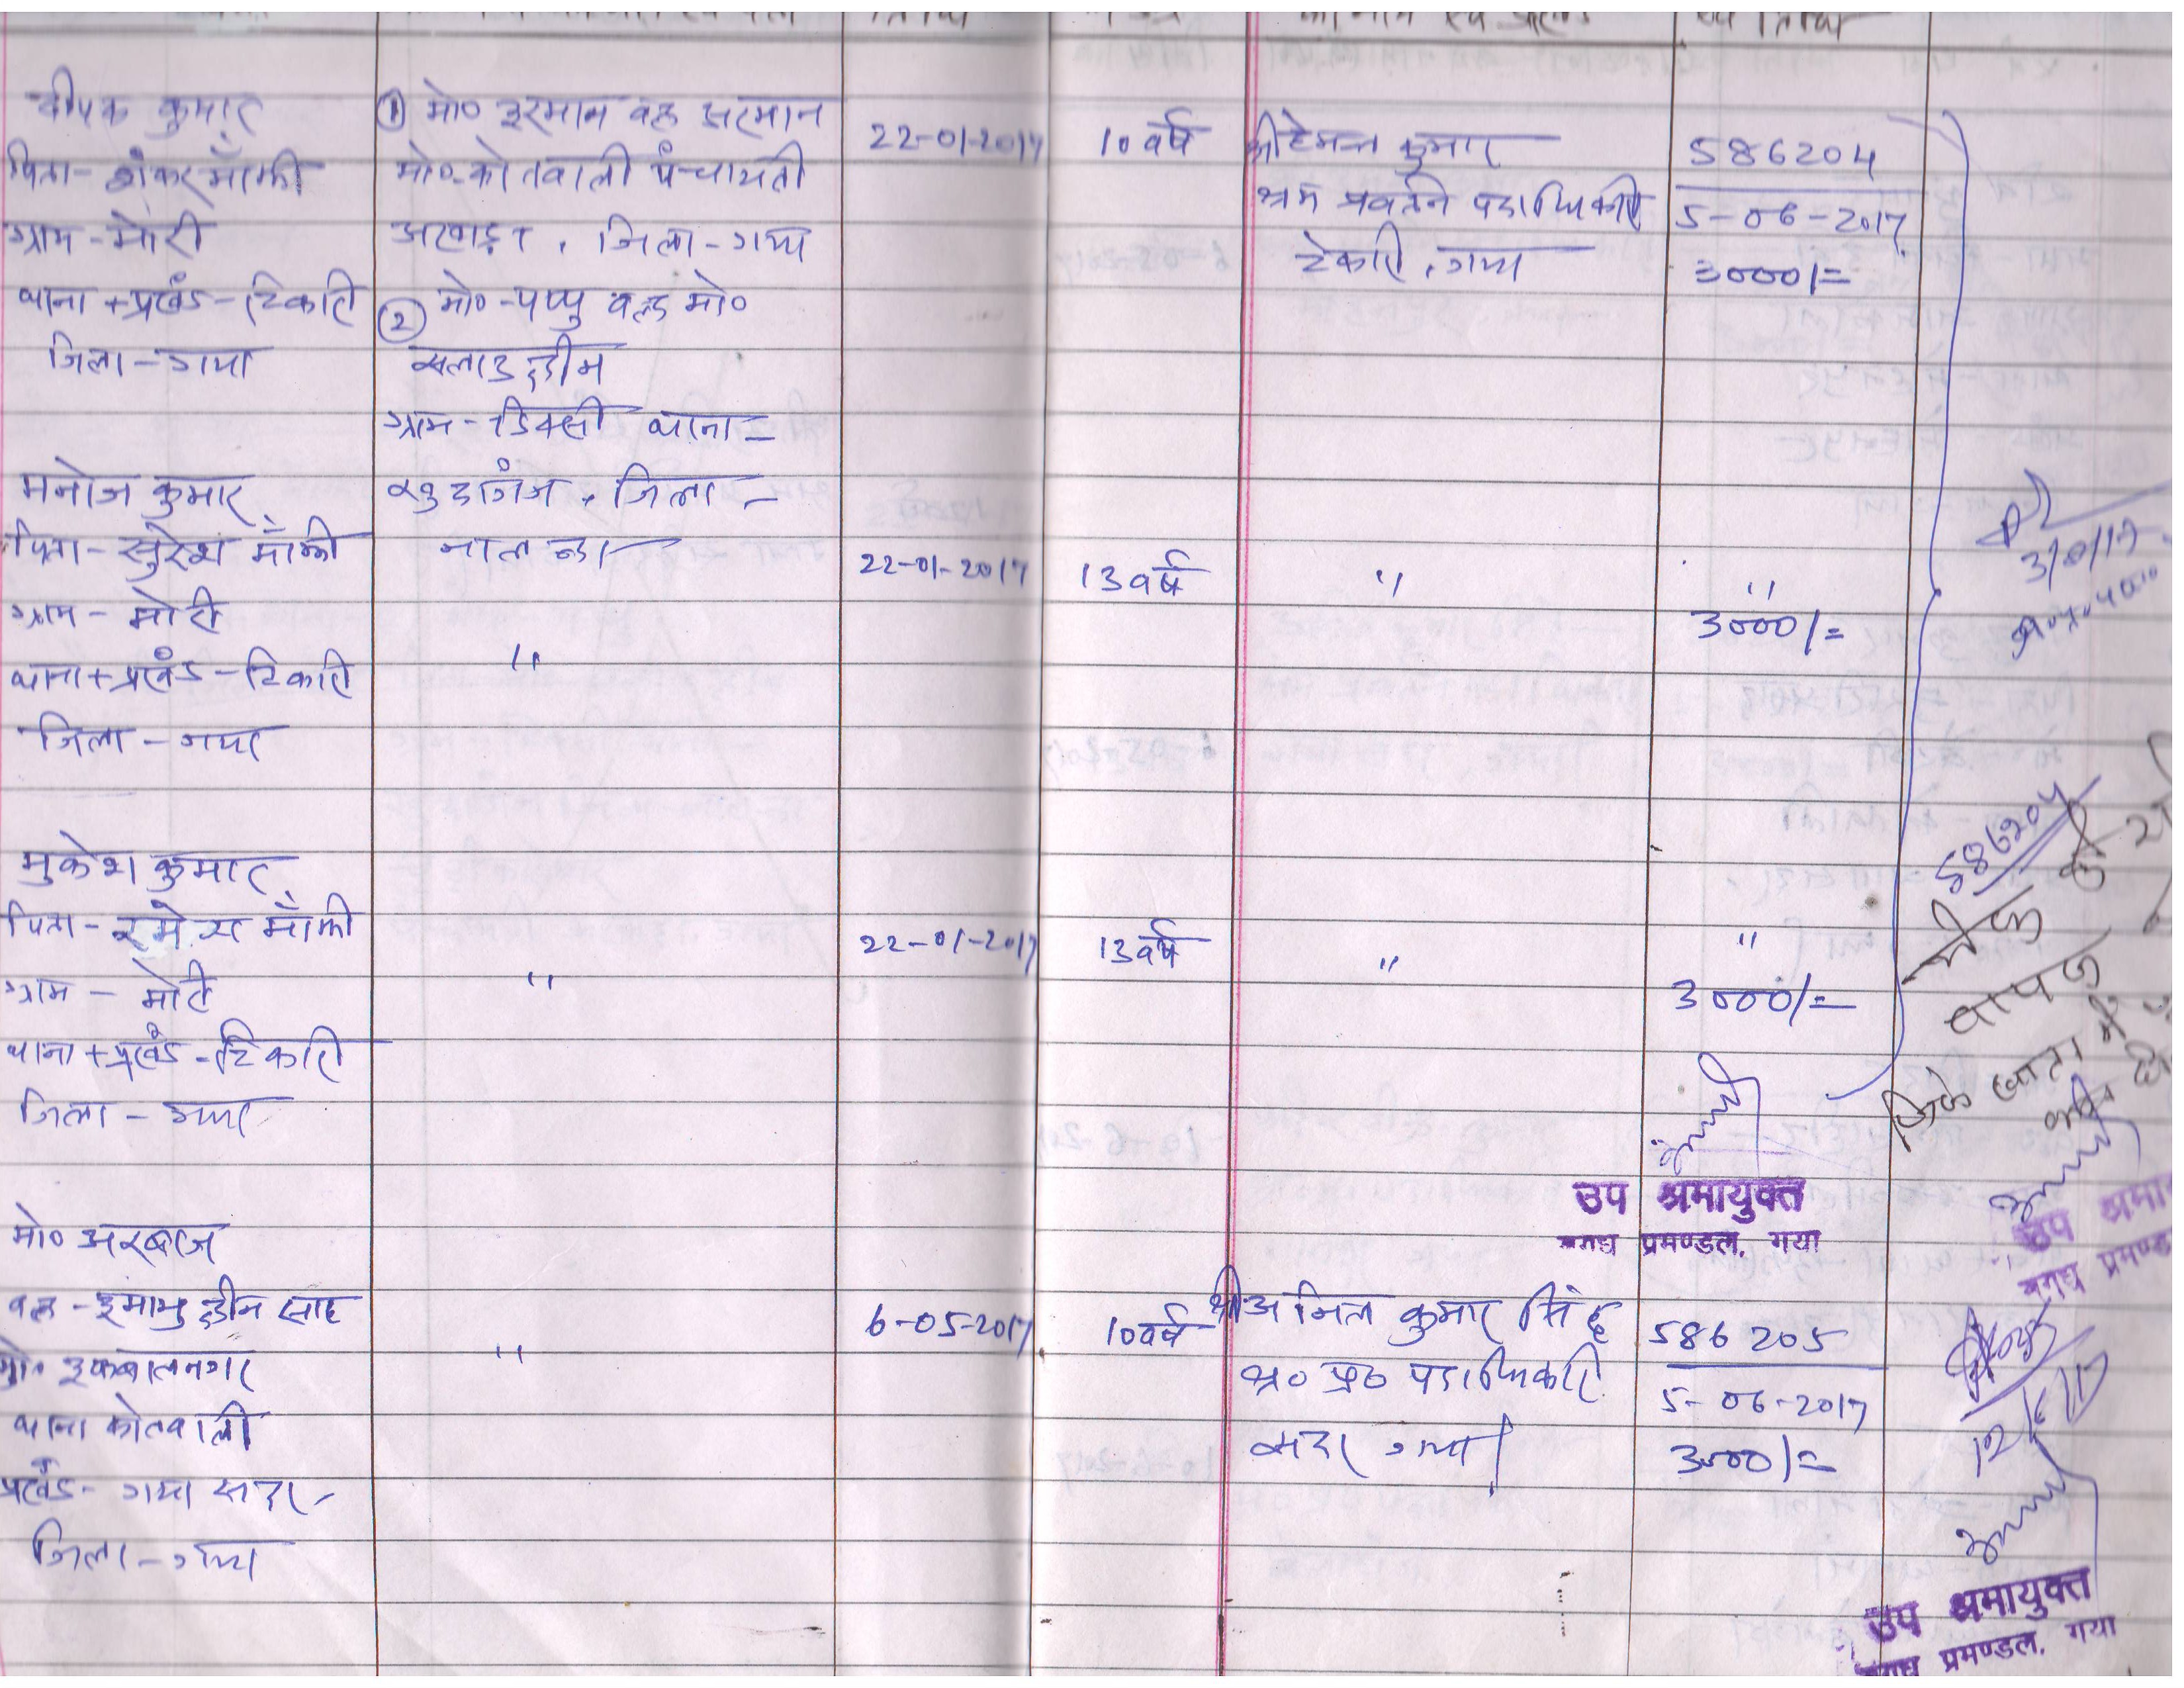 दीपक कुमार
पिता - शंकर माँझी
ग्राम - मोरी
थाना + प्रखंड - टिकारी
जिला - गया
① मो० इरमान वल्द अरमान
मो०-कोतवाली पंचायती
अखाड़ा, जिला - गया
② मो० - पप्पु वल्द मो०
सलाउद्दीन
ग्राम - डिक्सी थाना -
खुदागंज, जिला -
नालन्दा
22-01-2017
10 वर्ष
श्री हेमन्त कुमार
श्रम प्रवर्तन पदाधिकारी
टेकारी, गया
586204
5-06-2017
3000/=
मनोज कुमार
पिता - सुरेश माँझी
ग्राम - मोरी
थाना + प्रखंड - टिकारी
जिला - गया
"
22-01-2017
13 वर्ष
"
"
3000/=
मुकेश कुमार
पिता - रमेश माँझी
ग्राम - मोरी
थाना + प्रखंड - टिकारी
जिला - गया
"
22-01-2017
13 वर्ष
"
"
3000/=
586204
चेक
वापस
खाता में
उप श्रमायुक्त
मगध प्रमण्डल, गया
मो० अरबाज
वल्द - इमामुद्दीन साह
मो० इकबालनगर
थाना कोतवाली
प्रखंड - गया सदर
जिला - गया
"
6-05-2017
10 वर्ष
श्री अनिल कुमार सिंह
श्र० प्र० पदाधिकारी
सदर गया
586205
5-06-2017
3000/=
उप श्रमा
मगध प्रमण्ड
उप श्रमायुक्त
मगध प्रमण्डल, गया